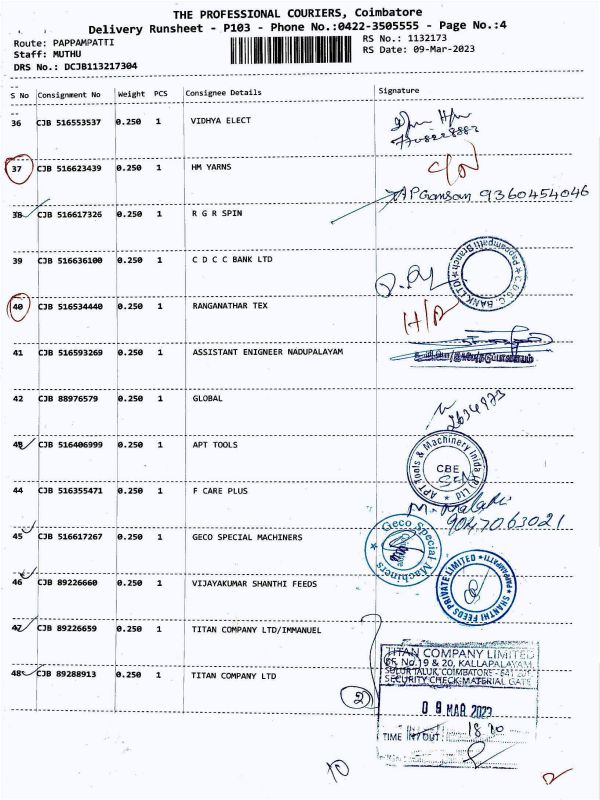 THE PROFESSIONAL COURIERS, Coimbatore
Delivery Runsheet - P103 - Phone No.:0422-3505555 - Page No.:4
Route: PAPPAMPATTI
Staff: MUTHU
DRS No.: DCJB113217304
RS No.: 1132173
RS Date: 09-Mar-2023
S No Consignment No Weight PCS Consignee Details Signature
36 CJB 516553537 0.250 1 VIDHYA ELECT
37 CJB 516623439 0.250 1 HM YARNS
38 CJB 516617326 0.250 1 R G R SPIN 9360454046
39 CJB 516636100 0.250 1 C D C C BANK LTD
C.D.C.C. BANK LTD. Pappampatti Branch
40 CJB 516534440 0.250 1 RANGANATHAR TEX
41 CJB 516593269 0.250 1 ASSISTANT ENIGNEER NADUPALAYAM
42 CJB 88976579 0.250 1 GLOBAL
2634973
43 CJB 516406999 0.250 1 APT TOOLS
APT Tools & Machinery India (P) Ltd
CBE
44 CJB 516355471 0.250 1 F CARE PLUS
9047063021
45 CJB 516617267 0.250 1 GECO SPECIAL MACHINERS
Geco Special Machiners
46 CJB 89226660 0.250 1 VIJAYAKUMAR SHANTHI FEEDS
SHANTHI FEEDS PRIVATE LIMITED PAPPAMPATTI
47 CJB 89226659 0.250 1 TITAN COMPANY LTD/IMMANUEL
48 CJB 89288913 0.250 1 TITAN COMPANY LTD
2
TITAN COMPANY LIMITED
SF. No.19 & 20, KALLAPALAYAM,
SULUR TALUK, COIMBATORE - 641 201
SECURITY CHECK-MATERIAL GATE
09 MAR 2023
TIME IN/OUT:
10